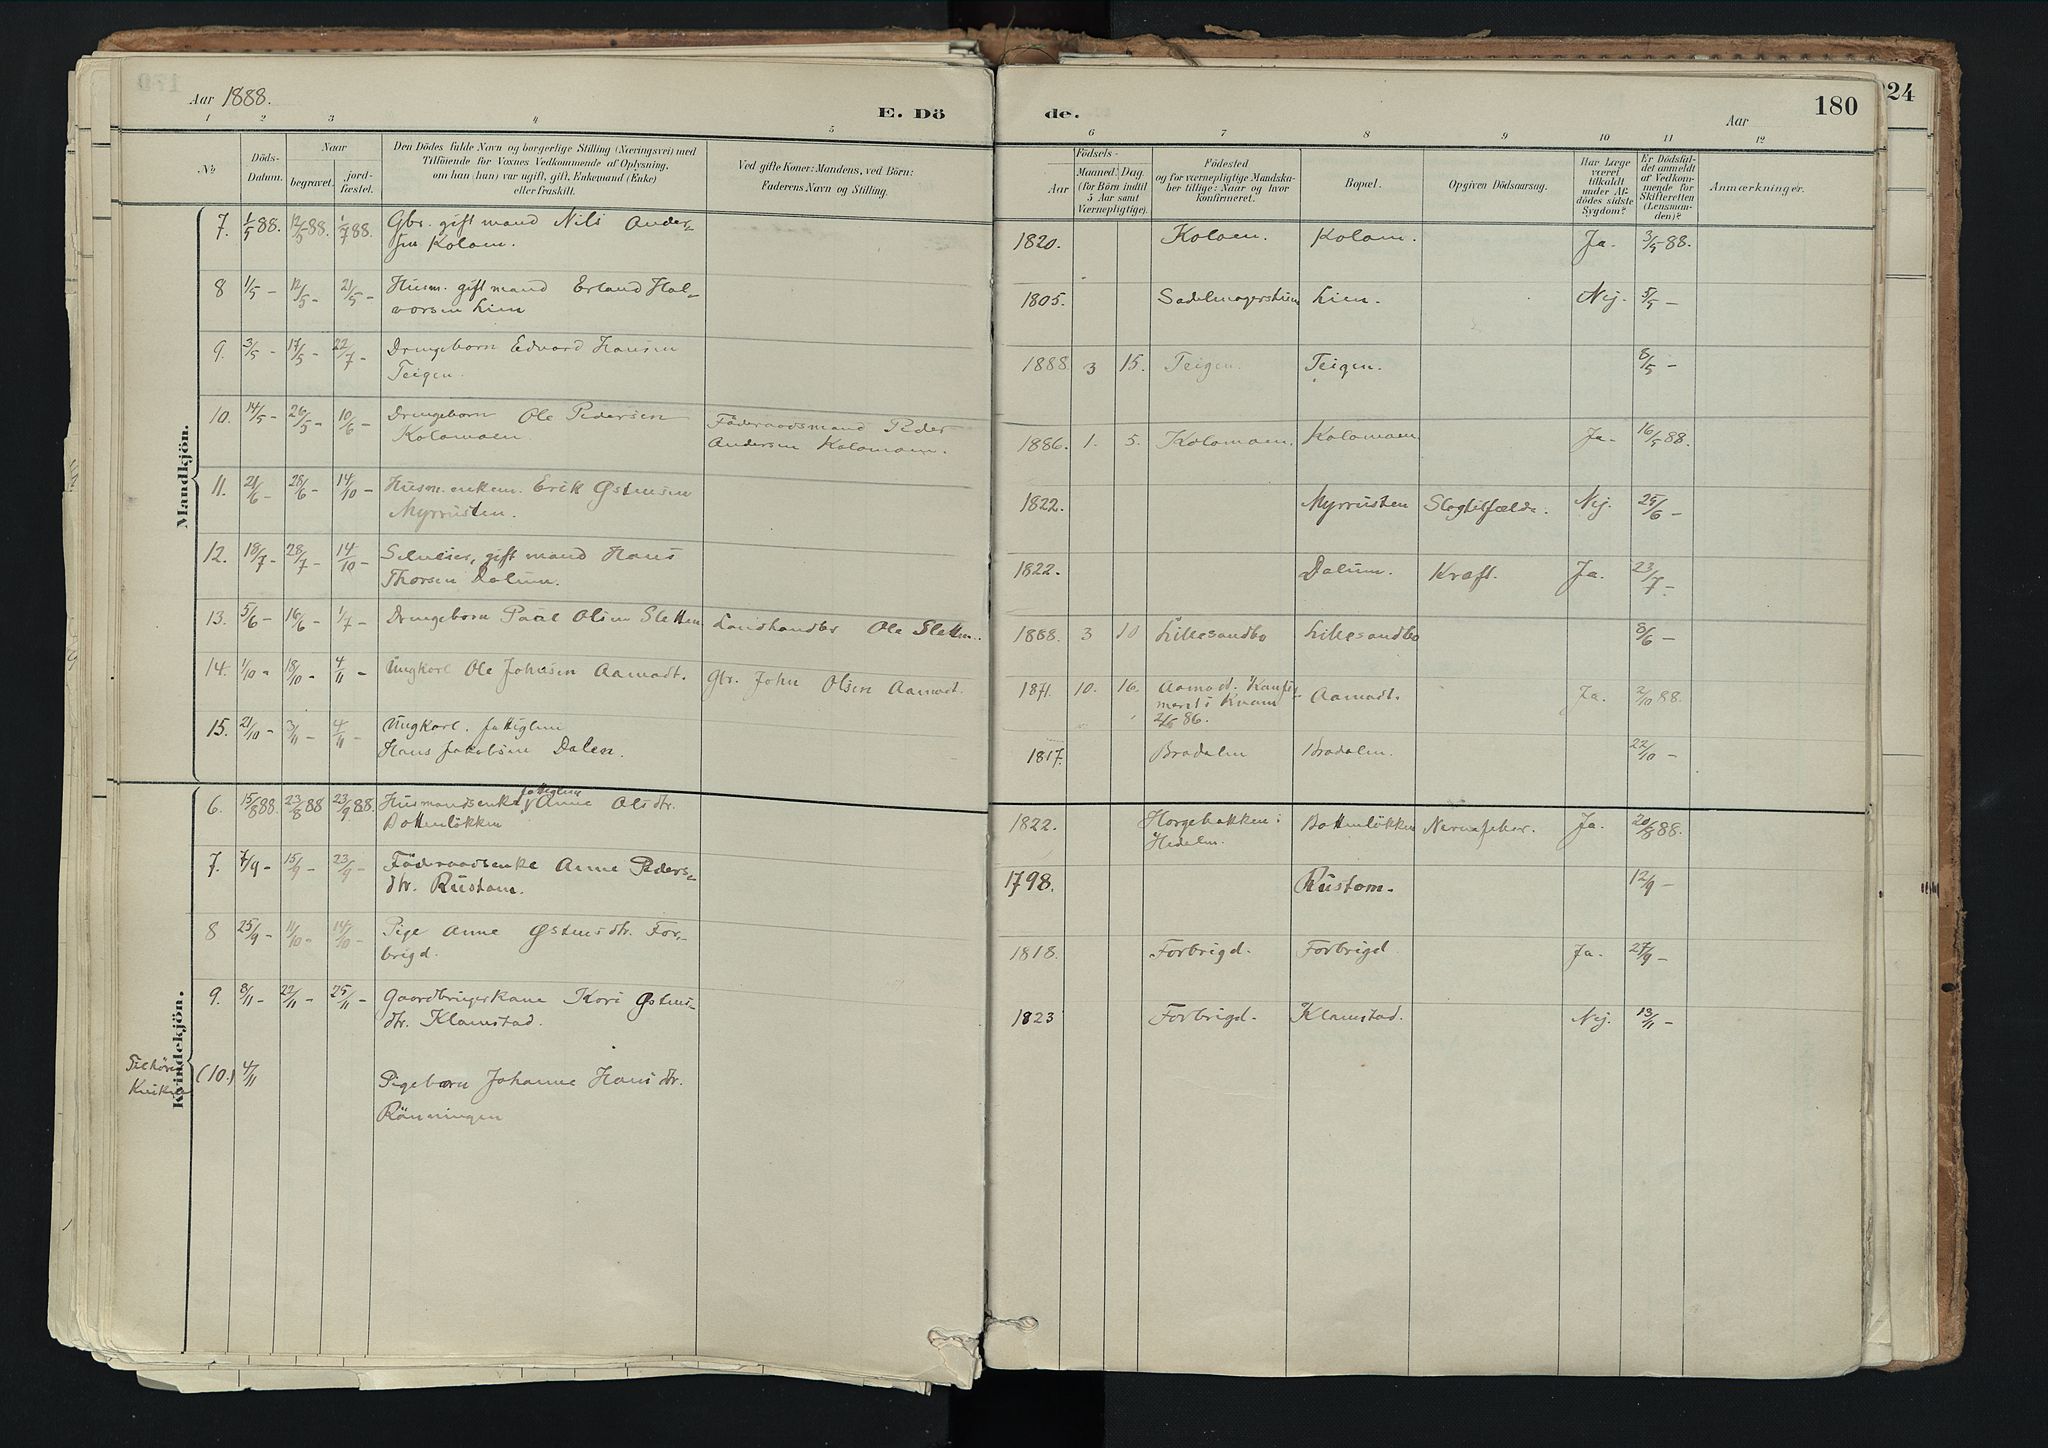 Aar 1888.
E. Dö
de.
Aar
180
224
1 2 3 4 5
6 7 8 9 10 11 12
No
Döds-
Datum.
Naar
begravet.
jord-
fæstet.
Den Dödes fulde Navn og borgerlige Stilling (Næringsvei) med
Tilföiende for Voxnes Vedkommende af Oplysning,
om han (hun) var ugift, gift, Enkemand (Enke)
eller fraskilt.
Ved gifte Koner: Mandens, ved Börn:
Faderens Navn og Stilling.
Födsels-
Aar
Maaned. Dag.
(for Börn indtil
5 Aar samt
Værnepligtige).
Födested
og for værnepligtige Mandska-
ber tillige: Naar og hvor
konfirmeret.
Bopæl.
Opgiven Dödsaarsag.
Har Læge
været
tilkaldt
under Af-
dödes sidste
Sygdom?
Er Dödsfal-
det anmeldt
af Vedkom-
mende for
Skifteretten
(Lensman-
den)?
Anmærkninger.
Mandkjön.
7. 1/5 88. 12/5 88. 1/7 88. Gbr. gift mand Nils Ander-
sen Koloen.
1820. Koloen. Koloen. Ja. 3/5 88.
8 1/5 - 12/5 - 21/5 - Husm. gift mand Erland Hal-
vorsen Lien
1805. Lien. Nej. 5/5 -
9. 3/5 - 17/5 - 22/7 - Drengebarn Edvard Hansen
Teigen.
1888 3 15. Teigen. Teigen. 8/5 -
10. 14/5 - 26/5 - 10/6 - Drengebarn Ole Pedersen
Kolomoen.
Föderaadsmand Peder
Andersen Kolomoen.
1886. 1. 5. Kolomoen. Kolomoen Ja. 16/5 88.
11. 21/6 - 28/6 - 14/10 - Husm. enkem. Erik Østensen
Myrrusten.
1822. Myrrusten Slagtilfælde. Nej. 25/6 -
12. 18/7 - 28/7 - 14/10 - gift mand Hans
Thorsen Dalum.
1822. Dalum. Kræft. Ja. 23/7 -
13. 5/6 - 16/6 - 1/7 - Drengebarn Paul Olsen Sletten Landhandler Ole Sletten.
1888. 3 10 Lillesandbo Lillesandbo 8/6 -
14. 1/10 - 18/10 - 4/11 - Ungkarl Ole Johnsen Aamodt. Gbr. John Olsen Aamodt.
1871. 10. 16. Aamodt. Konfir-
meret i Kvam
86.
Aamodt. Ja. 2/10 88.
15. 21/10 - 3/11 - 4/11 - Ungkarl. fattiglem
Hans Jakobsen Dalen.
1817. Bradalen Bradalen. 22/10 -
Kvindekjön.
6. 15/8 88. 23/8 88 23/9 88. Husmandsenke fattiglem Anne Olsdtr.
Bottenløkken
1822. Horgebakken i
Hedalen.
Bottenløkken Nervefeber. Ja. 20/8 88.
7. 7/9 - 15/9 - 23/9 - Föderaadsenke Anne Peders-
dtr. Rustom.
1798. Rustom. 12/9 -
8 25/9 - 11/10 - 14/10 - Pige Anne Østensdtr. For-
brigd.
1818. Forbrigd. Forbrigd Ja. 27/9 -
9. 8/11 - 22/11 - 25/11 - Gaardbrugerkone Kari Østens-
dtr. Klomstad.
1823 Forbrigd. Klomstad. Nej. 13/11 -
(10.) 4/11 Pigebarn Johanne Hansdtr.
Rönningen